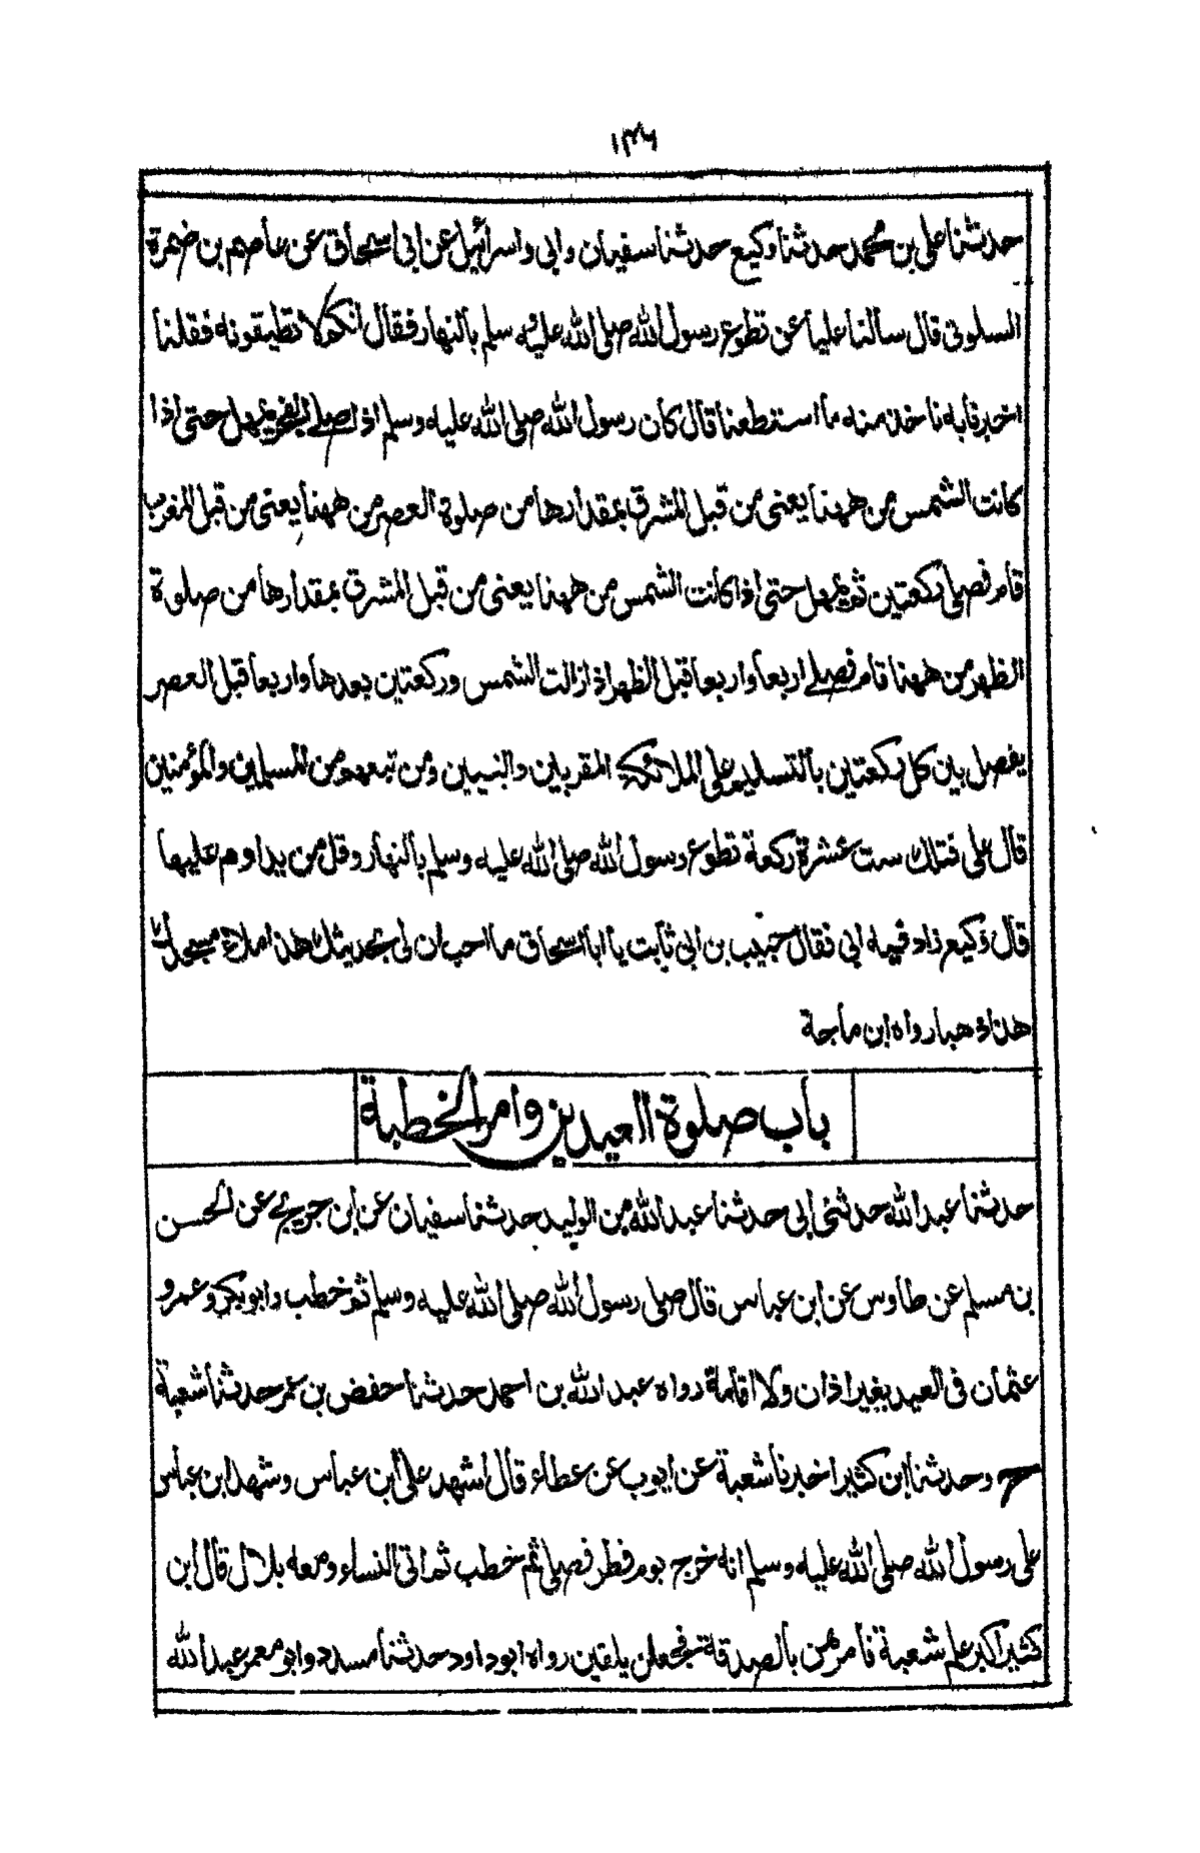 ١٣٦
حدثنا على بن محمد حدثنا وكيع حدثنا سفيان وابى واسرائيل عن ابى اسحاق عن عاصم بن ضمرة
السلولى قال سالنا عليا عن تطوع رسول الله صلى الله عليه وسلم بالنهار فقال انكم لا تطيقونه فقلنا
اخبرنا به ناخذ منه ما استطعنا قال كان رسول الله صلى الله عليه وسلم اذا صلے الفجر يمهل حتى اذا
كانت الشمس من ههنا يعنى من قبل المشرق بمقدارها من صلوة العصر من ههنا يعنى من قبل المغرب
قام فصلى ركعتين ثم يمهل حتى اذا كانت الشمس من ههنا يعنى من قبل المشرق بمقدارها من صلوة
الظهر من ههنا قام فصلے اربعا واربعا قبل الظهر اذا زالت الشمس وركعتين بعدها واربعا قبل العصر
يفصل بين كل ركعتين بالتسليم على الملائكة المقربين والنبيين ومن تبعهم من المسلمين والمؤمنين
قال على فتلك ست عشرة ركعة تطوع رسول الله صلى الله عليه وسلم بالنهار وقل من يداوم عليها
قال وكيع زاد فيه ابى فقال حبيب بن ابى ثابت يا ابا اسحاق ما احب ان لى بحديثك هذا املاء مسجدك
هذا ذهبا رواه ابن ماجة
باب صلوة العيدين وامر الخطبة
حدثنا عبد الله حدثنى ابى حدثنا عبد الله بن الوليد حدثنا سفيان عن ابن جريج عن الحسن
بن مسلم عن طاوس عن ابن عباس قال صلى رسول الله صلى الله عليه وسلم ثم خطب وابو بكر وعمر و
عثمان فى العيد بغير اذان ولا اقامة رواه عبد الله بن احمد حدثنا حفض بن عمر حدثنا شعبة
ح وحدثنا ابن كثير اخبرنا شعبة عن ايوب عن عطاء قال اشهد على ابن عباس وشهد ابن عباس
على رسول الله صلى الله عليه وسلم انه خرج يوم فطر فصلى ثم خطب ثم اتى النساء ومعه بلال قال ابن
كثير اكبر علم شعبة فامرهن بالصدقة فجعلن يلقين رواه ابو داود حدثنا مسدد وابو معمر عبد الله